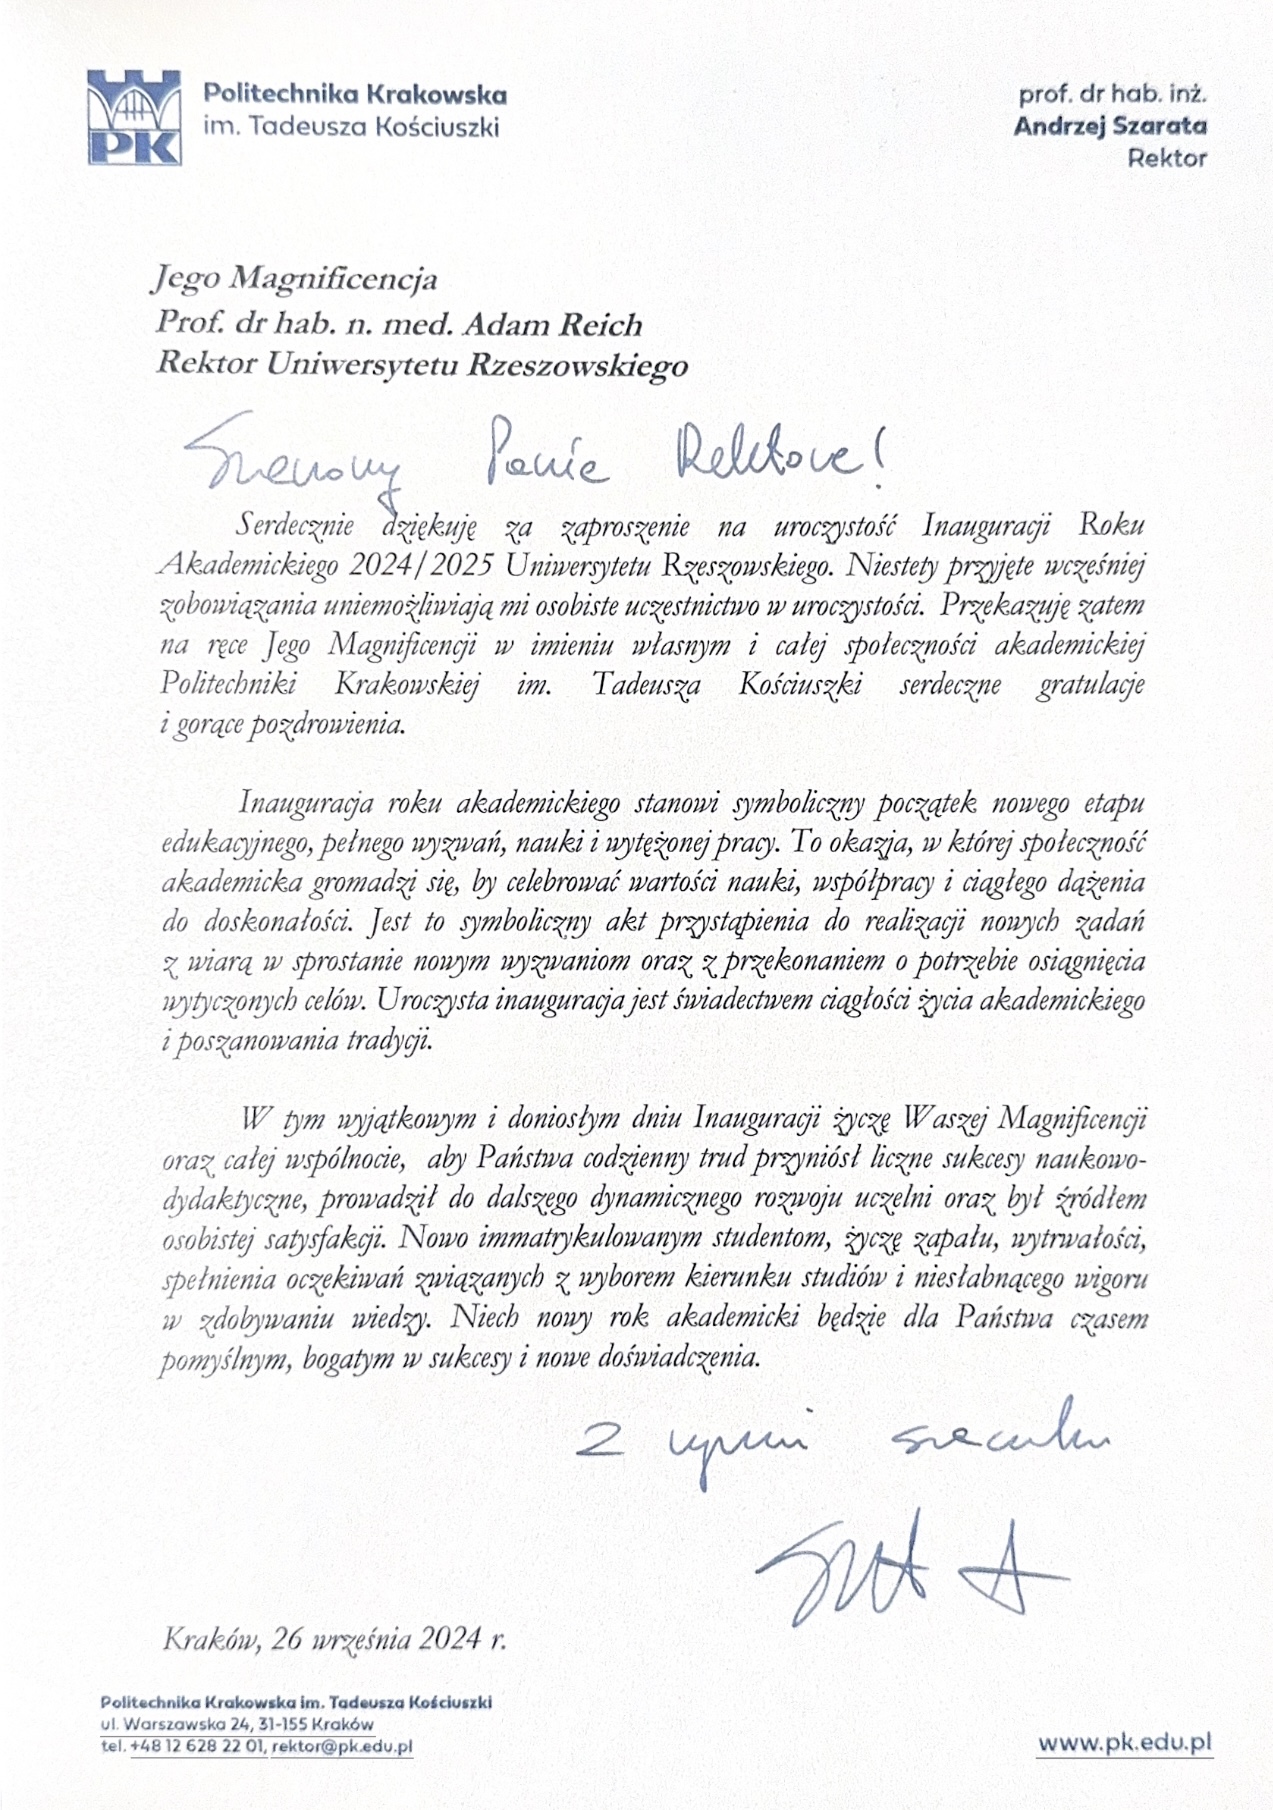 Politechnika Krakowska
im. Tadeusza Kościuszki
PK
prof. dr hab. inż.
Andrzej Szarata
Rektor
Jego Magnificencja
Prof. dr hab. n. med. Adam Reich
Rektor Uniwersytetu Rzeszowskiego
Szanowny Panie Rektorze!
Serdecznie dziękuję za zaproszenie na uroczystość Inauguracji Roku
Akademickiego 2024/2025 Uniwersytetu Rzeszowskiego. Niestety przyjęte wcześniej
zobowiązania uniemożliwiają mi osobiste uczestnictwo w uroczystości. Przekazuję zatem
na ręce Jego Magnificencji w imieniu własnym i całej społeczności akademickiej
Politechniki Krakowskiej im. Tadeusza Kościuszki serdeczne gratulacje
i gorące pozdrowienia.
Inauguracja roku akademickiego stanowi symboliczny początek nowego etapu
edukacyjnego, pełnego wyzwań, nauki i wytężonej pracy. To okazja, w której społeczność
akademicka gromadzi się, by celebrować wartości nauki, współpracy i ciągłego dążenia
do doskonałości. Jest to symboliczny akt przystąpienia do realizacji nowych zadań
z wiarą w sprostanie nowym wyzwaniom oraz z przekonaniem o potrzebie osiągnięcia
wytyczonych celów. Uroczysta inauguracja jest świadectwem ciągłości życia akademickiego
i poszanowania tradycji.
W tym wyjątkowym i doniosłym dniu Inauguracji życzę Waszej Magnificencji
oraz całej wspólnocie, aby Państwa codzienny trud przyniósł liczne sukcesy naukowo-
dydaktyczne, prowadził do dalszego dynamicznego rozwoju uczelni oraz był źródłem
osobistej satysfakcji. Nowo immatrykulowanym studentom, życzę zapału, wytrwałości,
spełnienia oczekiwań związanych z wyborem kierunku studiów i niesłabnącego wigoru
w zdobywaniu wiedzy. Niech nowy rok akademicki będzie dla Państwa czasem
pomyślnym, bogatym w sukcesy i nowe doświadczenia.
Z wyrazami szacunku
Kraków, 26 września 2024 r.
Politechnika Krakowska im. Tadeusza Kościuszki
ul. Warszawska 24, 31-155 Kraków
tel. +48 12 628 22 01, rektor@pk.edu.pl
www.pk.edu.pl